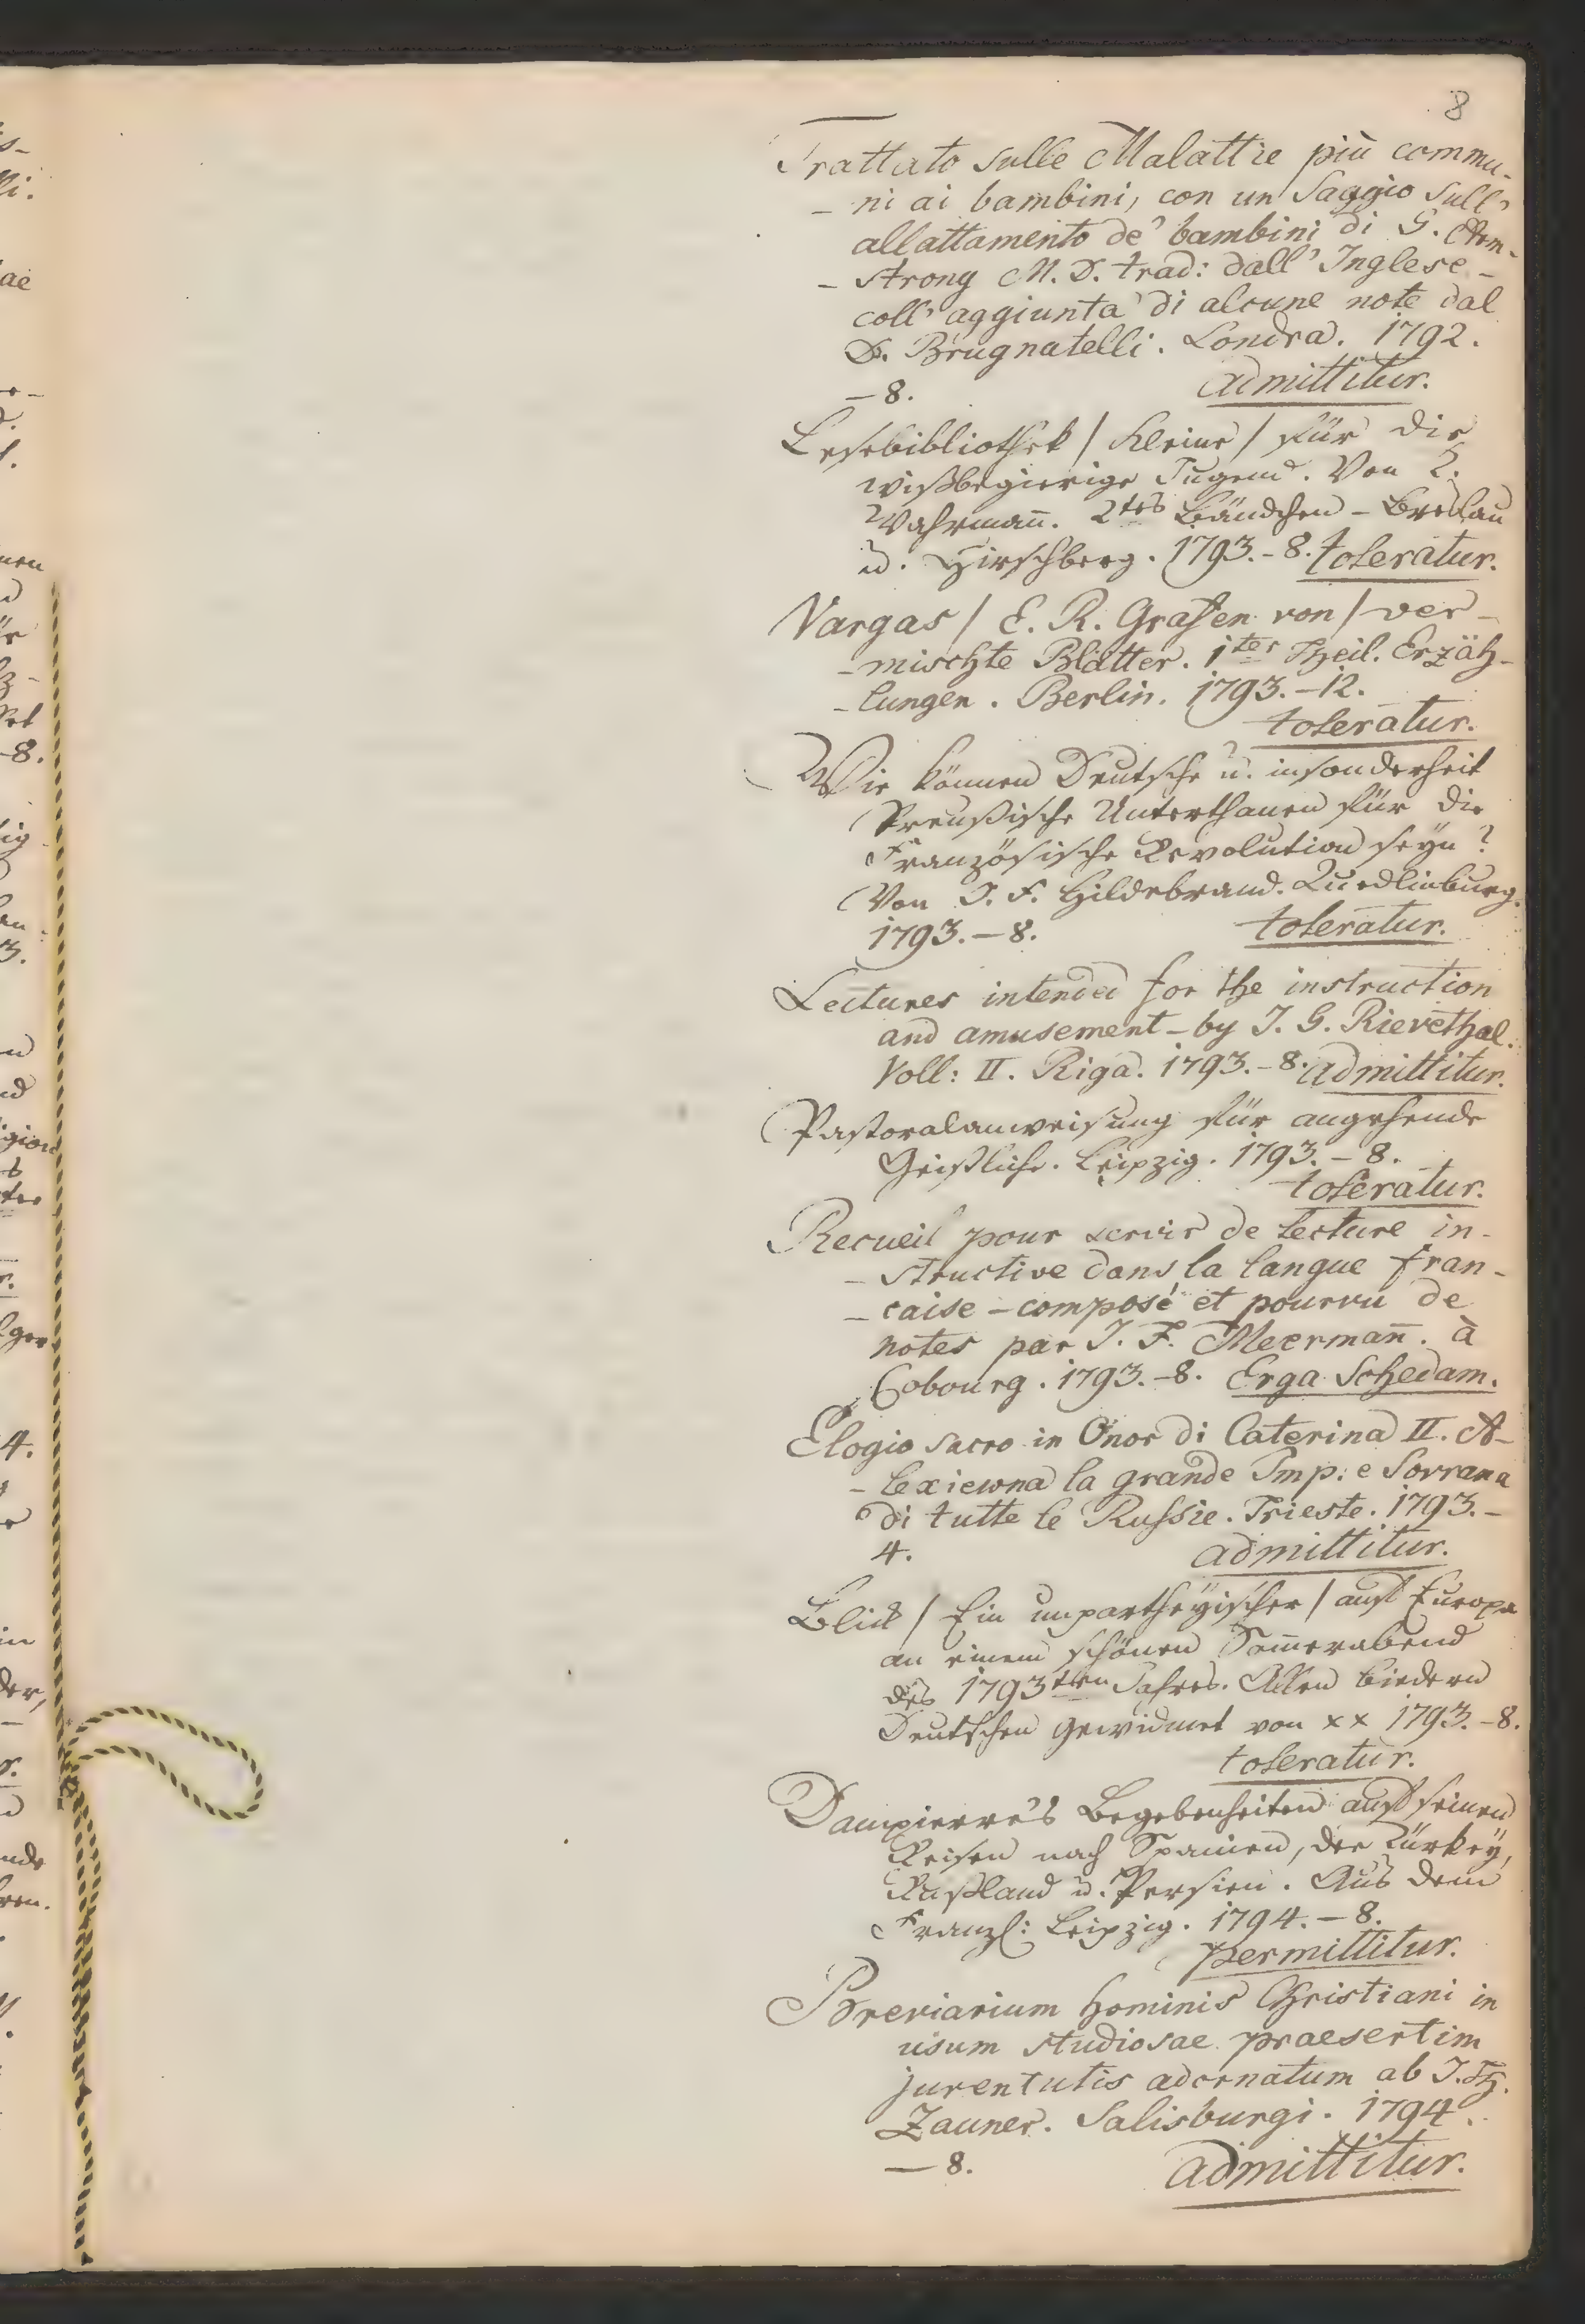 8
Trattato sulle Malattie più commu-
- ni ai bambini, con un Saggio sull'
allattamento de' bambini di G. Arm-
- strong M. D. trad: dall' Inglese -
coll' aggiunta di alcune note dal
D. Brugnatelli. Londra. 1792.
- 8. admittitur.
Lesebibliothek / Kleine / für die
wißbegierige Jugend. Von L.
Wahrman̄. 2tes Bändchen - Breslau
u. Hirschberg. 1793. - 8. toleratur.
Vargas / E. R. Grafen von / ver-
- mischte Blätter. 1ter Theil. Erzäh-
- lungen. Berlin. 1793. - 12.
toleratur.
Wie können Deutsche u. insonderheit
Preußische Unterthanen für die
Französische Revolution seyn?
Von J. F. Hildebrand. Quedlinburg.
1793. - 8. toleratur.
Lectures intended for the instruction
and amusement - by J. G. Rievethal.
Voll: II. Riga. 1793. - 8. admittitur.
Pastoralanweisung für angehende
Geistliche. Leipzig. 1793. - 8.
toleratur.
Recueil pour servir de lecture in-
- structive dans la langue fran-
- caise - composé et pourvu de
notes par J. F. Meerman̄. à
Cobourg. 1793. - 8. Erga Schedam.
Elogio sacro in Onor di Caterina II. A-
- lexiewna la grande Imp: e Sovrana
di tutte le Russie. Trieste. 1793. -
4. admittitur.
Blick / Ein unpartheyischer / auf Europa
an einem schönen Som̄erabend
des 1793sten Jahres. Allen biedern
Deutschen gewidmet von x x 1793. - 8.
toleratur.
Dampierre's Begebenheiten auf seinen
Reisen nach Spanien, der Türkey,
Rußland u. Persien. Aus dem
Franzs: Leipzig. 1794. - 8.
permittitur.
Breviarium hominis Christiani in
usum studiosae praesertim
juventutis adornatum ab J. Th.
Zauner. Salisburgi. 1794.
- 8. admittitur.